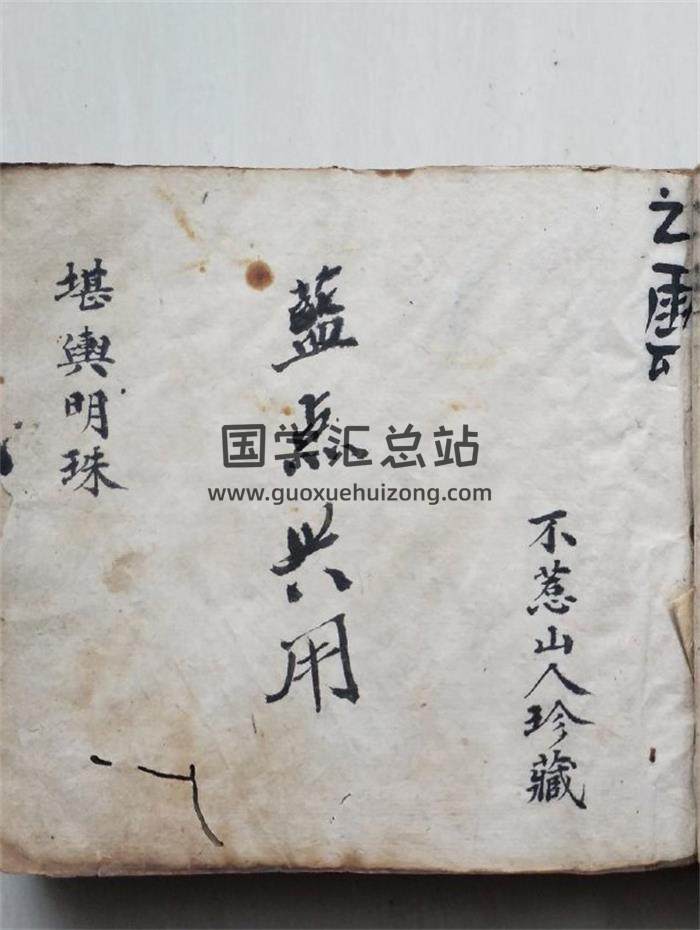 之雲
不惹山人珍藏
藍 共用
堪輿明珠
国学汇总站
www.guoxuehuizong.com